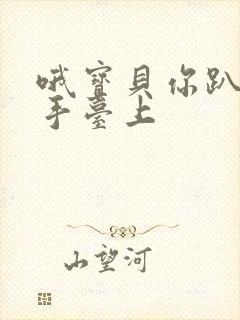 哦寶貝你趴
手臺上
山望河